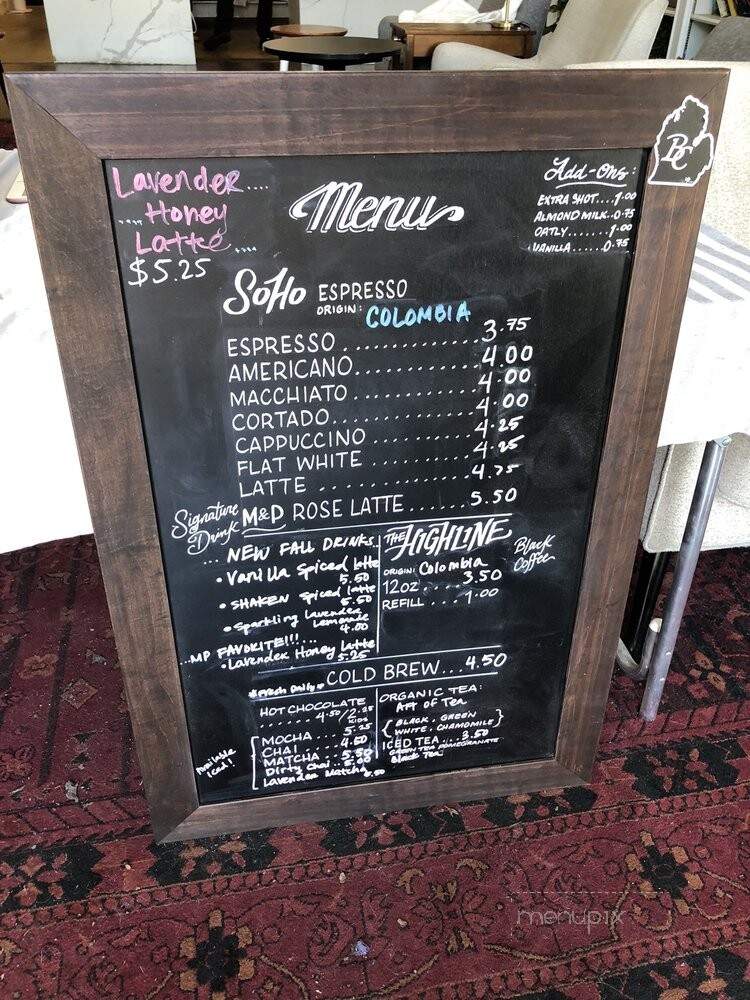 Lavender....
....Honey
Latte....
$5.25
Menu
Add-Ons:
EXTRA SHOT....1.00
ALMOND MILK..0.75
OATLY.......1.00
VANILLA......0.75
BC
SoHo ESPRESSO
ORIGIN: COLOMBIA
ESPRESSO ............... 3.75
AMERICANO............... 4.00
MACCHIATO ............... 4.00
CORTADO................ 4.00
CAPPUCCINO ............ 4.25
FLAT WHITE ............ 4.25
LATTE ................. 4.75
Signature Drink M&P ROSE LATTE....... 5.50
... NEW FALL DRINKS...
• Vanilla Spiced latte
5.50
• SHAKEN Spiced latte
5.50
• Sparkling Lavender
Lemonade
4.00
...MP FAVORITE!!!...
• Lavender Honey Latte
5.25
THE HIGHLINE
Black Coffee
ORIGIN: Colombia
12oz ..... 3.50
REFILL .... 1.00
*Fresh Daily* COLD BREW...4.50
HOT CHOCOLATE
...... 4.50/2.25
KIDS
MOCHA ...... 5.25
CHAI ....... 4.50
MATCHA ... 5.50
Dirty Chai .. 5.00
Lavender Matcha 5.50
Available iced!
ORGANIC TEA:
Art of Tea
{BLACK, GREEN
WHITE, CHAMOMILE}
ICED TEA... 3.50
GREEN TEA POMEGRANATE
Black Tea
menupix